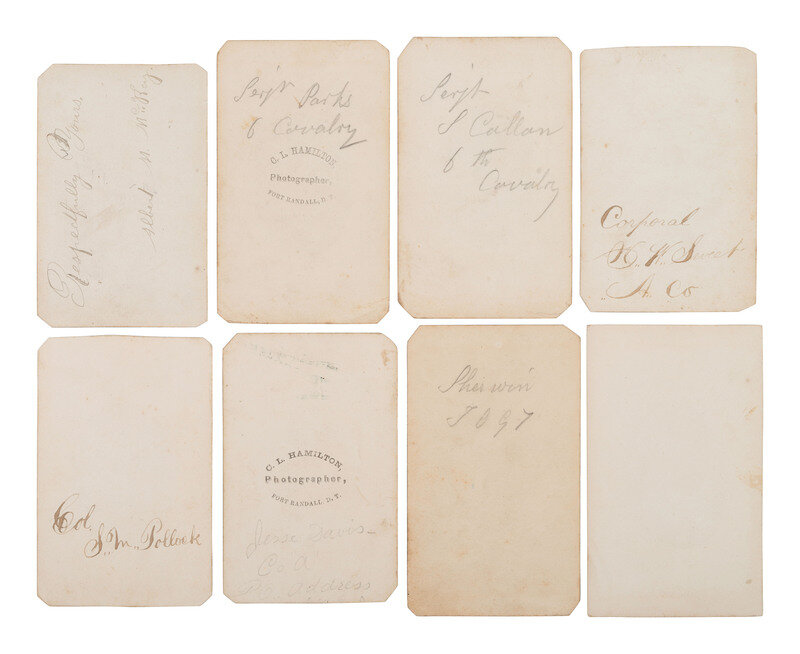 Respectfully Yours
Albert M. McKay.
Serjt Parks
6 Covalry
C. L. HAMILTON
Photographer,
FORT RANDALL, D. T.
Serjt
S Callan
6 th
Covalry
Corporal
H. W. Sweet
A Co
Col.
S. M. Pollock
C. L. HAMILTON,
Photographer,
FORT RANDALL, D. T.
Jesse Davis
Co A
address
Sherwin